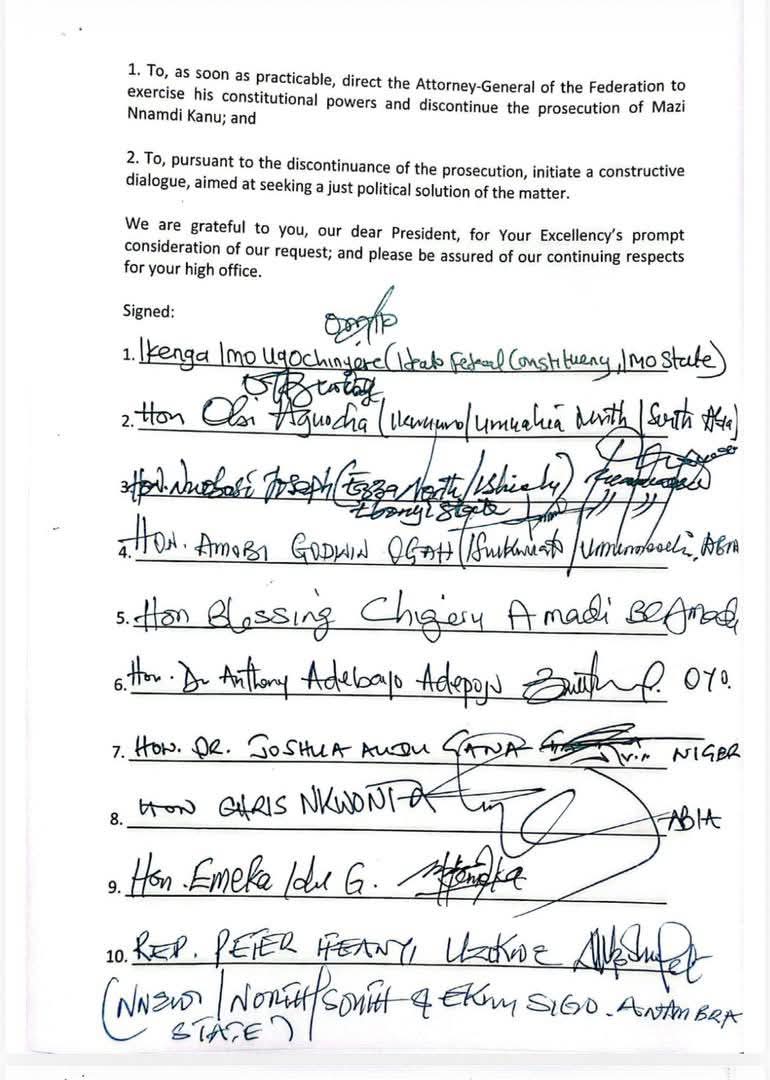 1. To, as soon as practicable, direct the Attorney-General of the Federation to
exercise his constitutional powers and discontinue the prosecution of Mazi
Nnamdi Kanu; and
2. To, pursuant to the discontinuance of the prosecution, initiate a constructive
dialogue, aimed at seeking a just political solution of the matter.
We are grateful to you, our dear President, for Your Excellency's prompt
consideration of our request; and please be assured of our continuing respects
for your high office.
Signed:
1. Ikenga Imo Ugochinyere (Ideato Federal Constituency, Imo State)
2. Hon Obi Aguocha (Ikwuano/Umuahia North/South Abia)
3. Hon. Nwobasi Joseph (Ezza North/Ishielu)
Ebonyi State
4. HON. AMOBI GODWIN OGAH ABIA
5. Hon Blessing Chigeru Amadi
6. Hon. Dr Anthony Adebayo Adepoju OYO.
7. HON. DR. JOSHUA AUDU GANA NIGER
8. HON CHRIS NKWONTA ABIA
9. Hon. Emeka Idu G.
10. REP. PETER IFEANYI UZOKWE
(NNEWI/NORTH/SOUTH & EKWUSIGO. ANAMBRA
STATE)